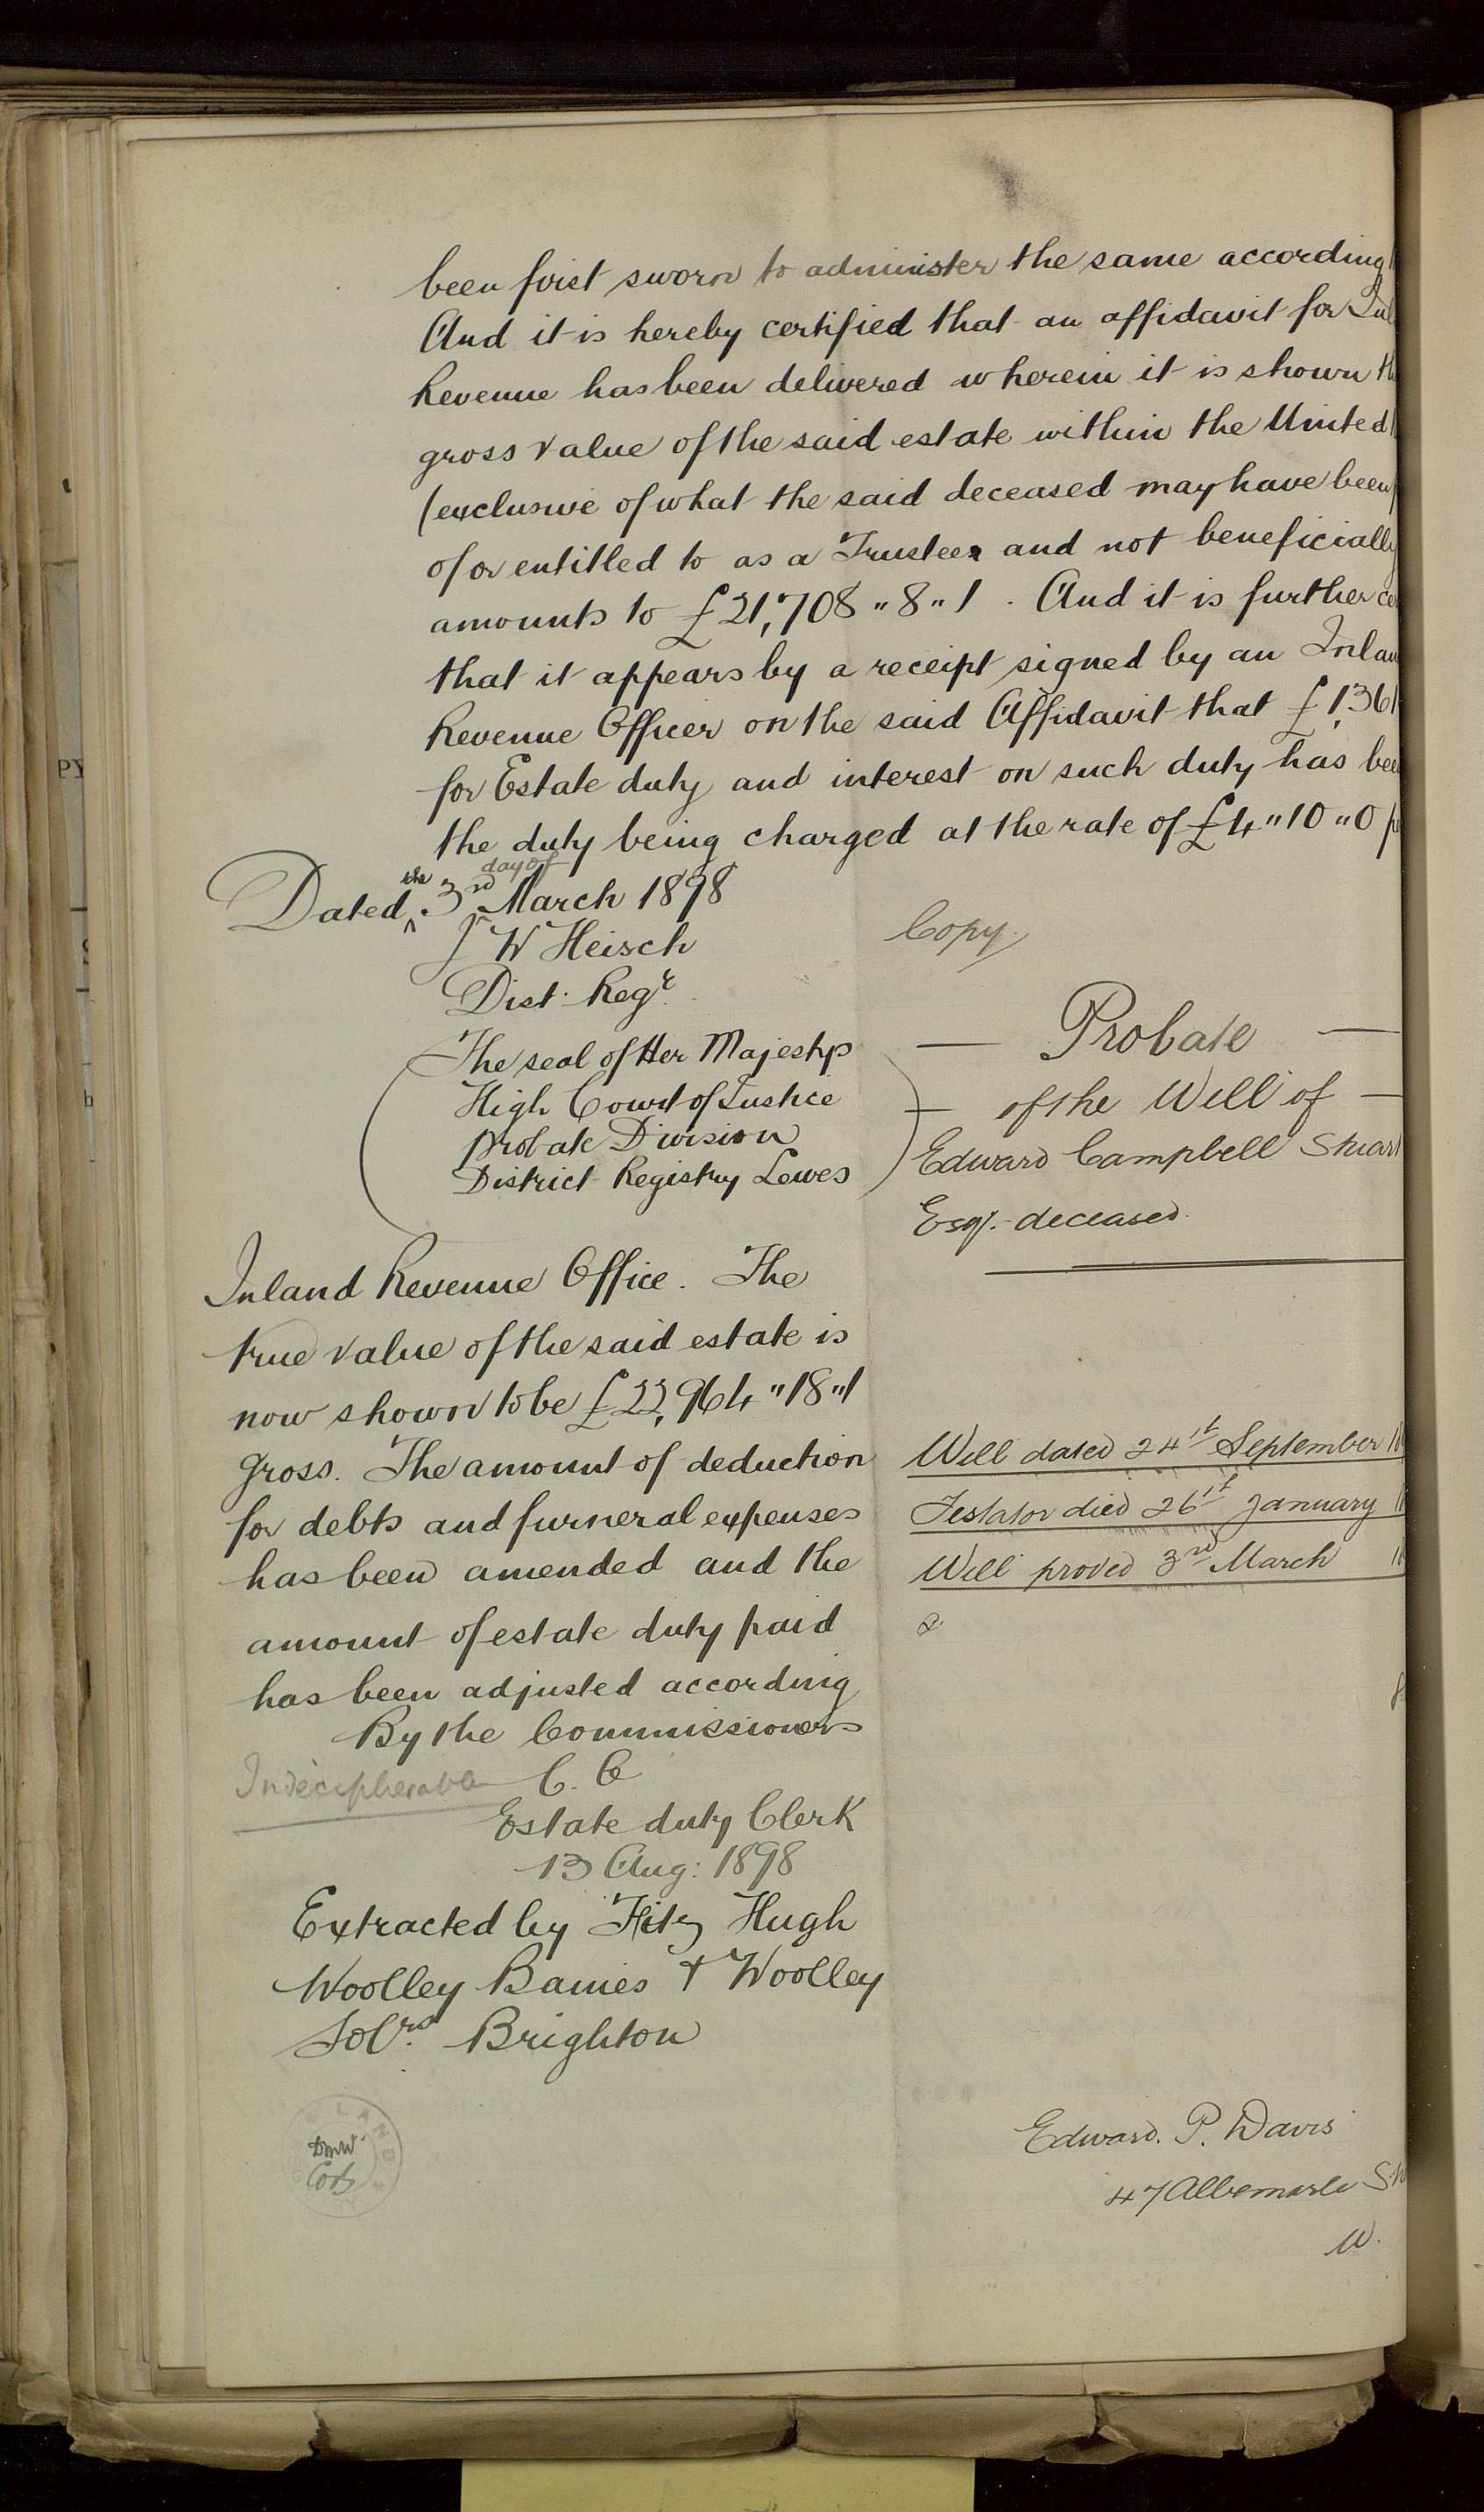 been first sworn to administer the same according
And it is hereby certified that an affidavit for
Revenue has been delivered wherein it is shown
gross value of the said estate within the United
(exclusive of what the said deceased may have been
of or entitled to as a Trustee and not beneficially
amounts to £21,708 " 8 " 1 . And it is further
that it appears by a receipt signed by an Inlan
Revenue Officer on the said Affidavit that £1,361
for Estate duty and interest on such duty has bee
the duty being charged at the rate of £4 " 10 " 0 p
Dated the 3rd day of March 1898
J W Heisch
Dist. Regr.
The seal of Her Majestys
High Court of Justice
Probate Division
District Registry Lewes
Inland Revenue Office. The
true value of the said estate is
now shown to be £22,964 " 18 " 1
gross. The amount of deduction
for debts and furneral expenses
has been amended and the
amount of estate duty paid
has been adjusted according
By the Commissioners
Indecipherable C. C
Estate duty Clerk
13 Aug: 1898
Extracted by Fitz Hugh
Woolley Baines + Woolley
Solrs. Brighton
Copy.
— Probate —
— of the Will of —
Edward Campbell Stuart
Esq. deceased.
Will dated 24th September
Testator died 26th January
Will proved 3rd March
Edward. P. Davis
47 Albemarle
W.